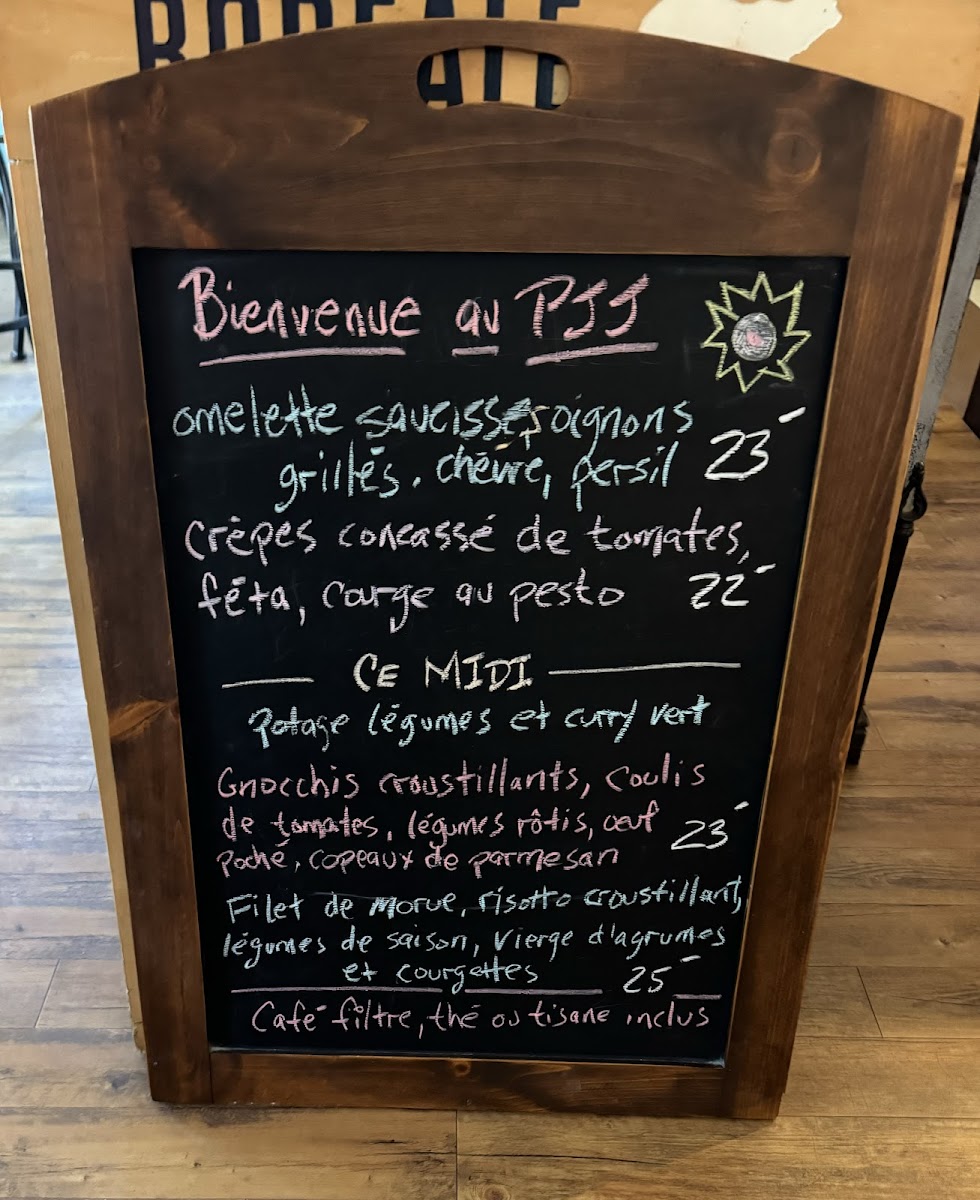 BOREALE
Bienvenue au PJJ
omelette saucisses oignons
grillés, chèvre, persil 23
crêpes concassé de tomates,
féta, courge au pesto 22
CE MIDI
Potage légumes et curry vert
Gnocchis croustillants, coulis
de tomates, légumes rôtis, œuf 23
Poché, copeaux de parmesan
Filet de morue, risotto croustillant,
légumes de saison, vierge d'agrumes
et courgettes 25
Café filtre, thé ou tisane inclus